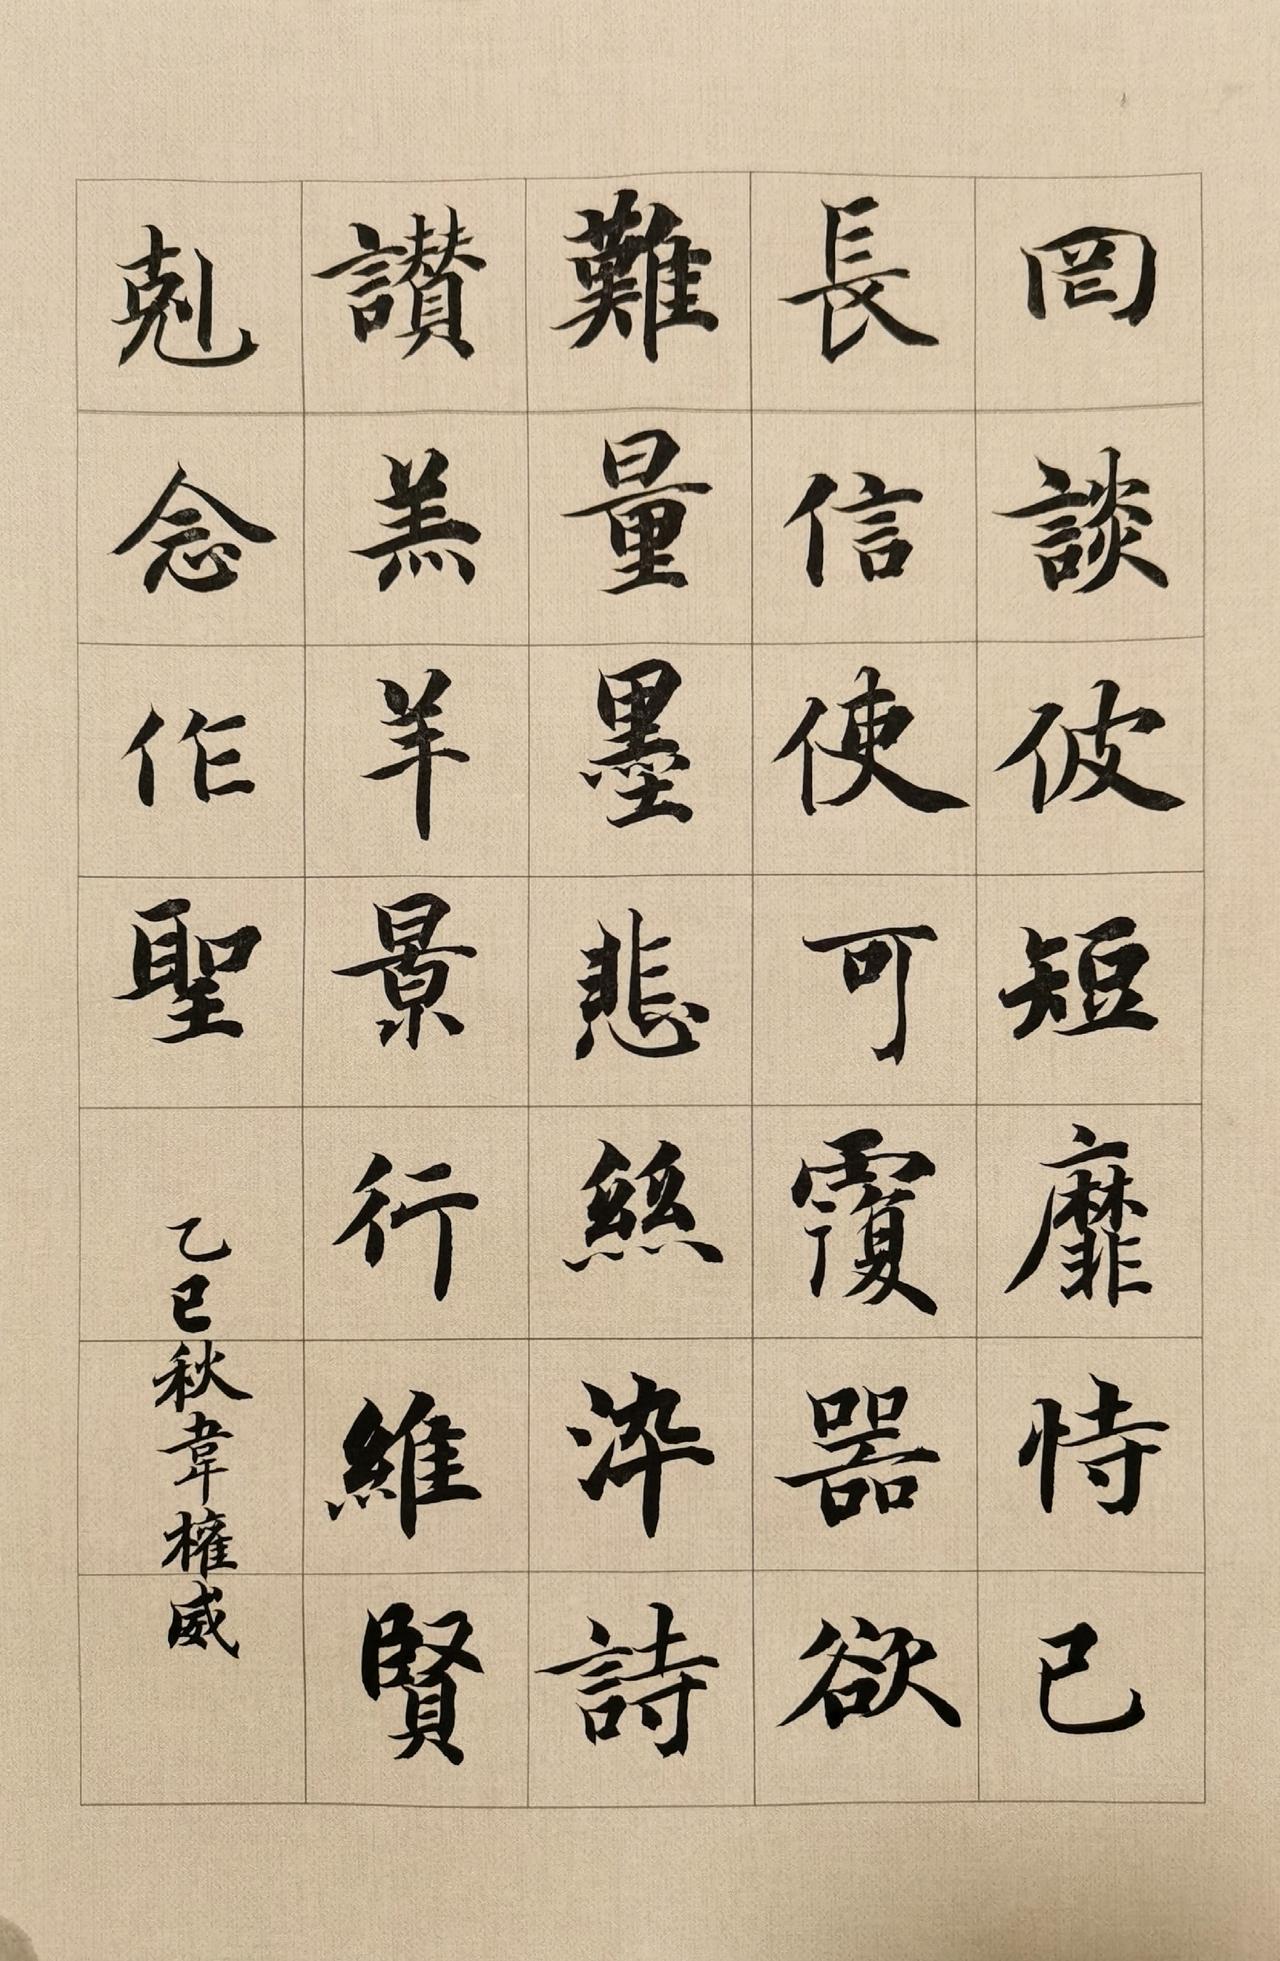 罔談彼短靡恃己
長信使可覆器欲
難量墨悲絲染詩
讃羔羊景行維賢
剋念作聖
乙巳秋韋權威